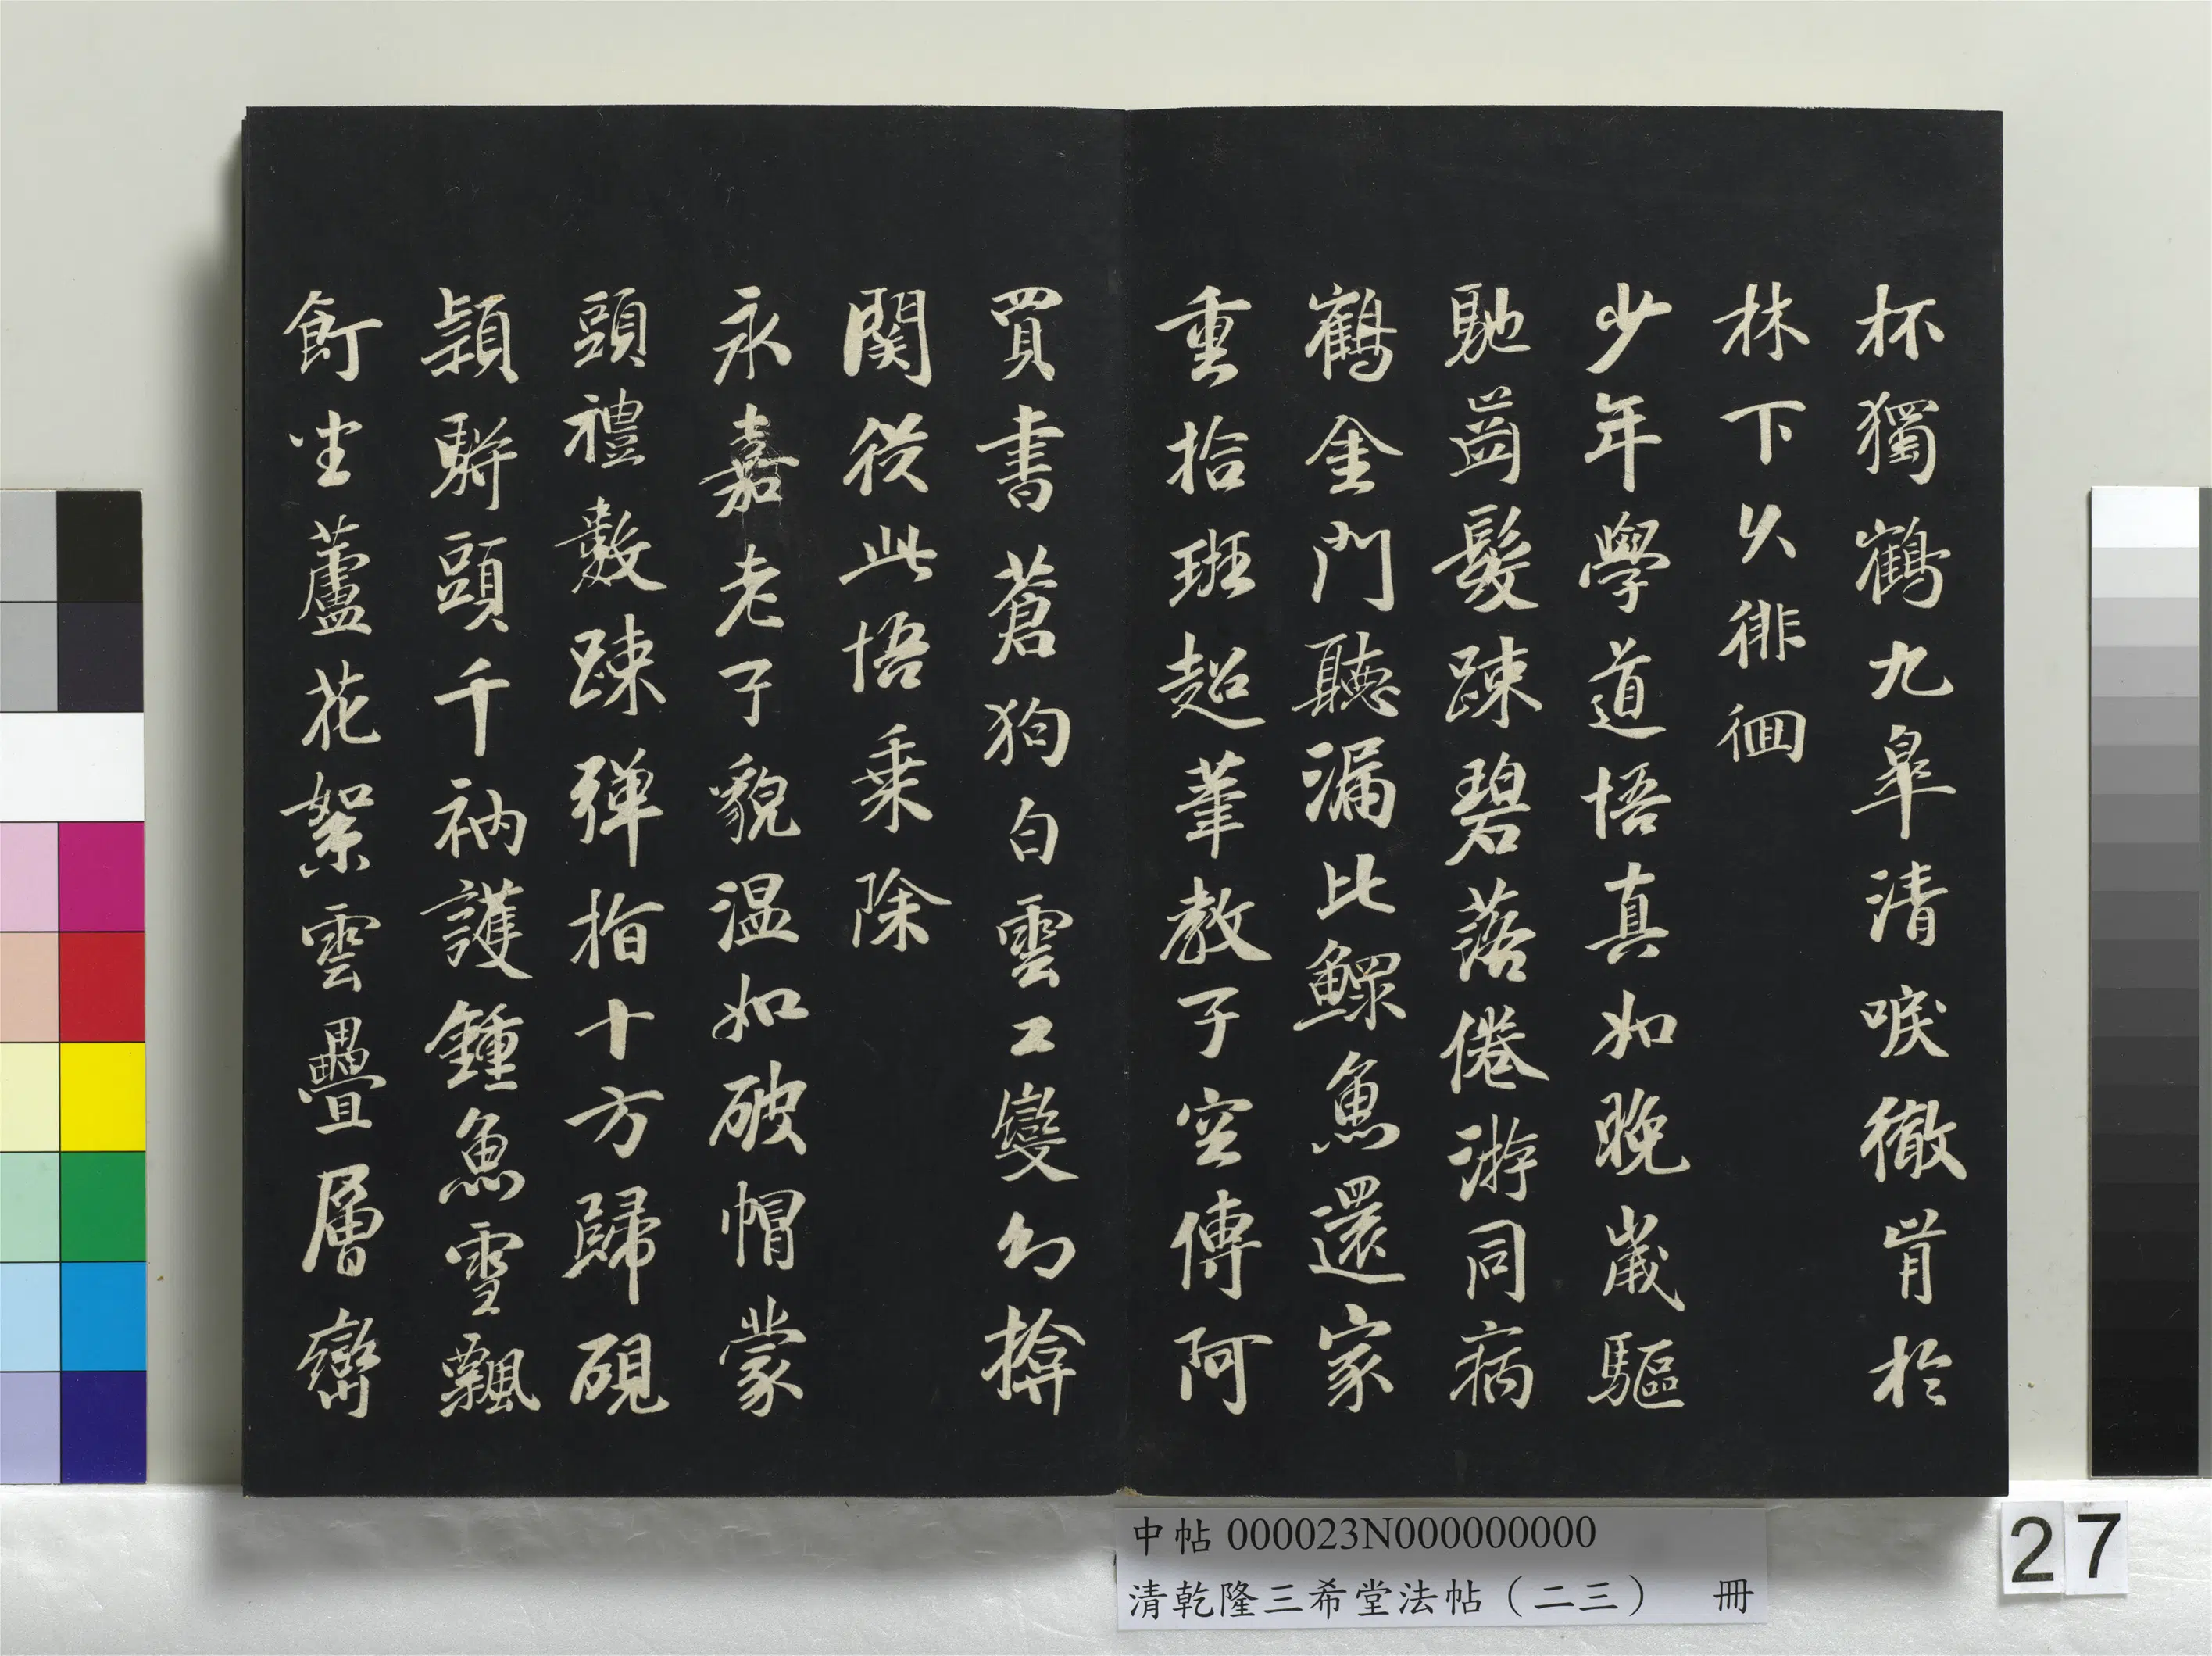 杯獨鶴九皋清唳徹肯於
林下久徘徊
少年學道悟真如晚歲驅
馳齒髮踈碧落倦游同病
鶴金門聽漏比鰥魚還家
重拾班超筆教子空傳阿
買書蒼狗白雲工變幻掩
関從此悟乗除
永嘉老子貌温如破帽蒙
頭禮數踈彈指十方歸硯
頴駢頭千衲護鍾魚雪飄
飣坐蘆花絮雲疊層巒
中帖 000023N000000000
清乾隆三希堂法帖（二三） 冊
27